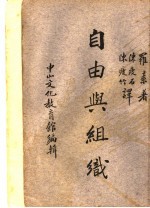 羅素著
陳瘦石
陳瘦竹譯
自由與組織
中山文化教育館編輯